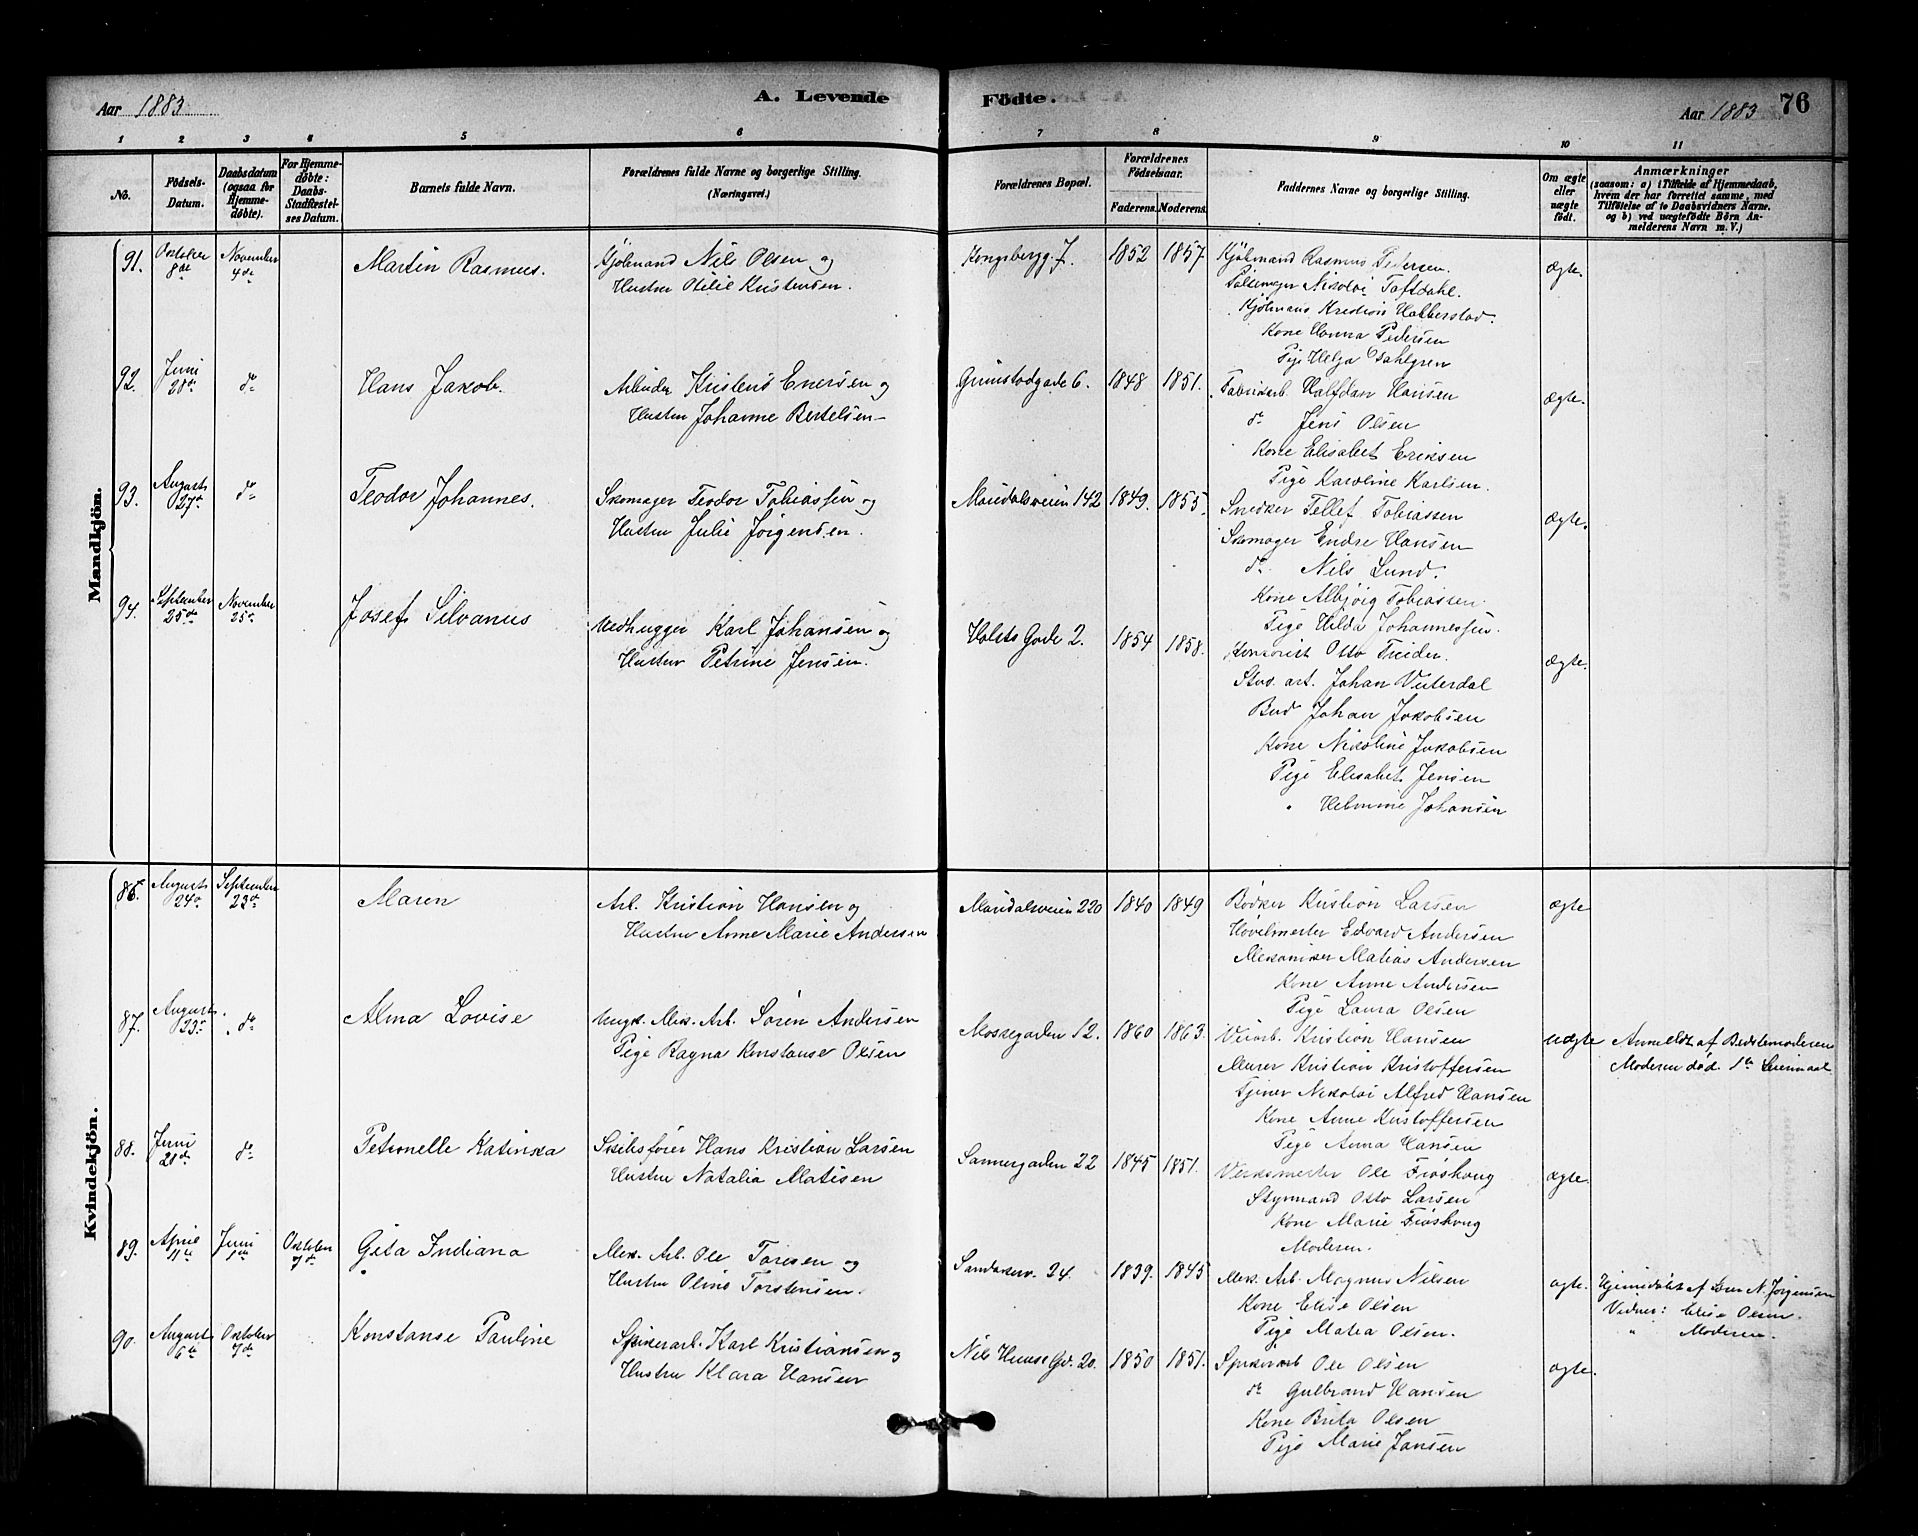 Aar 1883
A. Levende
Födte.
Aar 1883
76
1 2 3 4 5 6 7 8 9 10 11
No.
Födsels-
Datum.
Daabsdatum
(ogsaa for
Hjemme-
döbte).
For Hjemme-
döbte:
Daabs-
Stadfæstel-
ses Datum.
Barnets fulde Navn.
Forældrenes fulde Navne og borgerlige Stilling.
(Næringsvei.)
Forældrenes Bopæl.
Forældrenes
Födselsaar.
Faderens.
Moderens.
Faddernes Navne og borgerlige Stilling.
Om ægte
eller
uægte
födt.
Anmærkninger
(saasom: a) i Tilfælde af Hjemmedaab,
hvem der har forrettet samme, med
Tilföielse af to Daabsvidners Navne,
og b) ved uægtefödte Börn An-
melderens Navn m. V.)
Mandkjön.
91.
October
8de
November
4de
Martin Rasmus.
Nils Olsen og
Hustru Otilie Kristensen.
Kongsbergg. 7.
1852
1857.
Rasmus Pedersen.
Nikolai Toftdahl.
Kone Hanna Pedersen
Pige Helga Dahlgren
ægte.
92.
Juni
20de
do
Hans Jakob.
Arbeider Kristens Enersen og
Hustru Johanne Bertelsen
Grimstadgade 6.
1848
1851.
Fabrikarb. Halfdan Hansen
do Jens Olsen
Kone Elisabet Eriksen
Pige Karoline Karlsen.
ægte.
93.
August
27de
do
Teodor Johannes.
Skomager Teodor Tobiassen og
Hustru Julie Jørgensen.
Maridalsveien 142
1849.
1855.
Snedker Tellef Tobiassen
Skomager Endre Hansen
do Nils Lund.
Kone Albjørg Tobiassen.
Pige Hilda Johannessen.
ægte.
94.
September
25de
November
25de
Josef Silvanus
Vedhugger Karl Johansen og
Hustru Petrine Jensen.
Holsts Gade 2.
1854
1858.
Kontorist Otto Treider.
Stud. art. Johan Vesterdal
Bud Johan Jakobsen
Kone Nikoline Jakobsen
Pige Elisabet Jensen
" Helmine Johansen
ægte.
Kvindekjön.
86.
August
24de
September
23de
Maren
Arb. Kristian Hansen og
Hustru Anne Marie Andersen
Maridalsveien 220
1840
1849
Bødker Kristian Larsen
Høvelmester Edvard Andersen
Mekaniker Matias Andersen
Kone Anne Andersen
Pige Laura Olsen
ægte
87.
August
23de
do
Alma Lovise
Ungk. Mek. Arb. Søren Andersen
Pige Ragna Konstanse Olsen
Mossegaden 12.
1860
1863.
Kristian Hansen
Murer Kristian Kristoffersen
Tjener Nikolai Alfred Hansen
Kone Anne Kristoffersen
Pige Anna Hansen
uægte
Anmeldt af Bedstemoderen
Moderen død. 1ste Leiermaal.
88.
Juni
21de
do
Petronelle Katinka
Skibsfører Hans Kristian Larsen
Hustru Natalia Matisen
Sannergaden 22
1845
1851.
Verksmester Ole Frøshoug
Styrmand Otto Larsen
Kone Marie Frøshoug
Moderen.
ægte.
89.
April
11te
Juni
1ste
October
7de
Geta Indiana
Mek. Arb. Ole Toresen og
Hustru Oline Torstensen.
Sandakerv. 24.
1839.
1845
Mek. Arb. Magnus Nilsen
Kone Elise Olsen
Pige Matea Olsen.
ægte.
Hjemmedøbt af N. Jørgensen
Vidner: Elise Olsen.
" Moderen.
90.
August
6te
October
7de
Konstanse Pauline
Spikerarb. Karl Kristiansen og
Hustru Klara Hansen
Nils Huus Gd. 20.
1850
1851.
Spikerarb Ole Olsen
do Gulbrand Hansen
Kone Brita Olsen
Pige Marie Jansen
ægte.